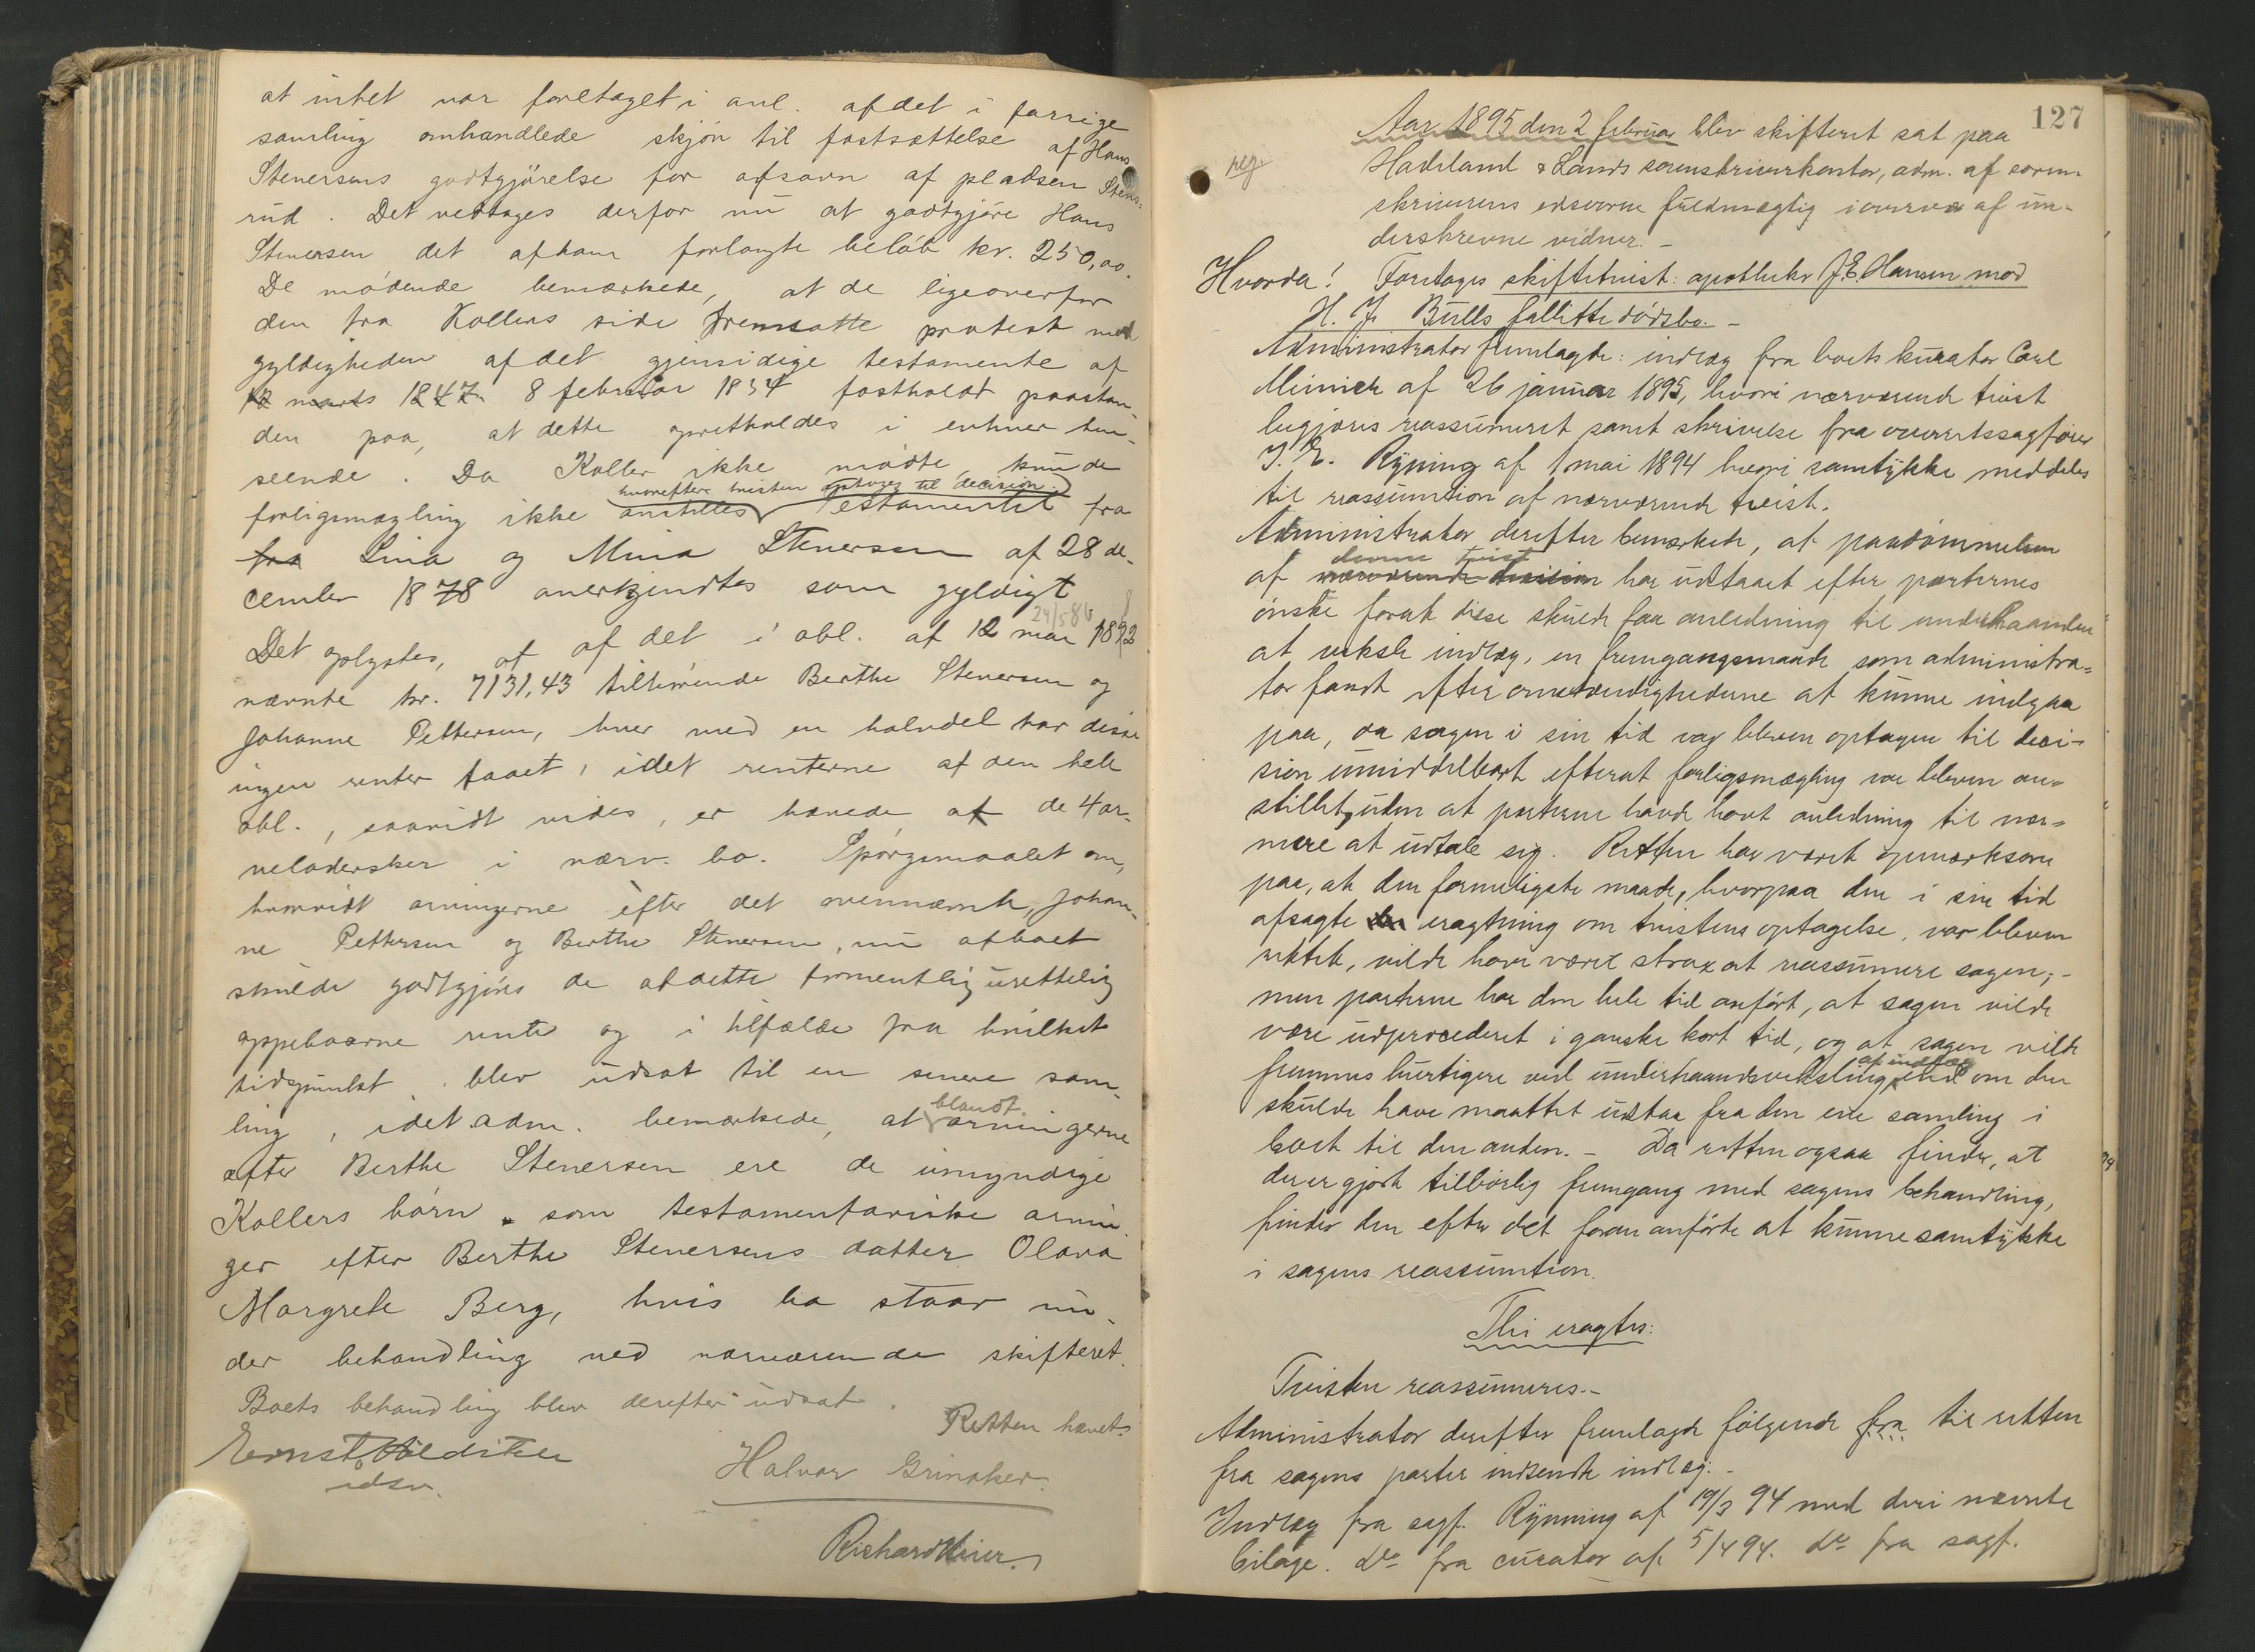 at intet var foretaget i anl. af det i forrige
samling omhandlede skjøn til fastsættelse af Hans
Stenersens godtgjörelse for afsavn af pladsen Stens-
rud. Det vedtages derfor nu at godtgjöre Hans
Stenersen det af ham forlangte beløb kr. 250,00.
De mödende bemærkede, at de ligeoverfor
den fra Kollers side fremsatte protest mod
gyldigheden af det gjensidige testamente af
12 marts 1847 8 februar 1854 fastholdt paastan-
den paa, at dette opretholdes i enhver hen-
seende. Da Koller ikke mødte, kunde
hvorefter tvisten optoges til decision
forligsmægling ikke anstilles Testamentet fra
fra Lina og Mina Stenersen af 28 de-
cember 1878 anerkjendtes som gyldigt
24/5 86
Det oplystes, at af det i obl. af 12 mai 1892
nævnte kr. 7131,43 tilhørende Berthe Stenersen og
Johanne Pettersen, hver med en halvdel har disse
ingen renter faaet, idet renterne af den hele
obl., saavidt vides, er hævede af de 4 ar-
veladersker i nærv. bo. Spørgsmaalet om,
hvorvidt arvingerne efter det ovennævnte, Johan-
ne Pettersen og Berthe Stenersen, nu af boet
skulde godtgjöres de af dette formentlig urettelig
oppebaarne renter og i tilfælde fra hvilket
tidspunkt blev udsat til en senere sam-
ling, idet adm. bemærkede, at arvingerne
blandt
efter Berthe Stenersen ere de umyndige
Kollers börn som testamentariske arvin-
ger efter Berthe Stenersens datter Olava
Margrete Berg, hvis bo staar un-
der behandling ved nærværende skifteret.
Boets behandling blev derefter udsat.
Retten hævet.
Ernst
edsv.
Halvor Grinaker.
Richard
127
reg.
Aar 1895 den 2 februar blev skifteret sat paa
Hadeland & Lands sorenskriverkontor, adm. af soren-
skriverens edsvorne fuldmægtig i overvær af un-
derskrevne vidner. -
Hvorda! Foretages skiftetvist: apotheker J.E. Hansen mod
H. J. Bulls fallitte dödsbo. -
Administrator fremlagde: indlæg fra boets kurator Carl
Minich af 26 januar 1895, hvori nærværende tvist
begjæres reassumeret samt skrivelse fra overretssagfører
J. E. Rynning af 1 mai 1894 hvori samtykke meddeles
til reassumtion af nærværende tvist.
Administrator derefter bemærkede, at paadömmelsen
denne tvist
af nærværende decision har udstaaet efter parternes
önske forat disse skulde faa anledning til underhaanden
at veksle indlæg, en fremgangsmaade som administra-
tor fandt efter omstændighederne at kunne indgaa
paa, da sagen i sin tid var bleven optagen til deci-
sion umiddelbart efterat forligsmægling var bleven an-
stillet, uden at parterne havde havt anledning til nær-
mere at udtale sig. Retten har været opmærksom
paa, at den formeligste maade, hvorpaa den i sin tid
afsagte den eragtning om tvistens optagelse, var bleven
rettet, vilde have været strax at reassumere sagen; -
men parterne har den hele tid anført, at sagen vilde
være udprocederet i ganske kort tid, og at sagen vilde
af indlæg
fremmes hurtigere ved underhaandsveksling end om den
skulde have maattet udstaa fra den ene samling i
boet til den anden. - Da retten ogsaa finder, at
der er gjort tilbörlig fremgang med sagens behandling,
finder den efter det foran anförte at kunne samtykke
i sagens reassumtion.
Thi eragtes:
Tvisten reassumeres. -
Administrator derefter fremlagde følgende fra til retten
fra sagens parter indsendte indlæg: -
Indlæg fra sagf. Rynning af 19/3 94 med deri nævnte
bilage. do fra curator af 5/4 94. do fra sagf.